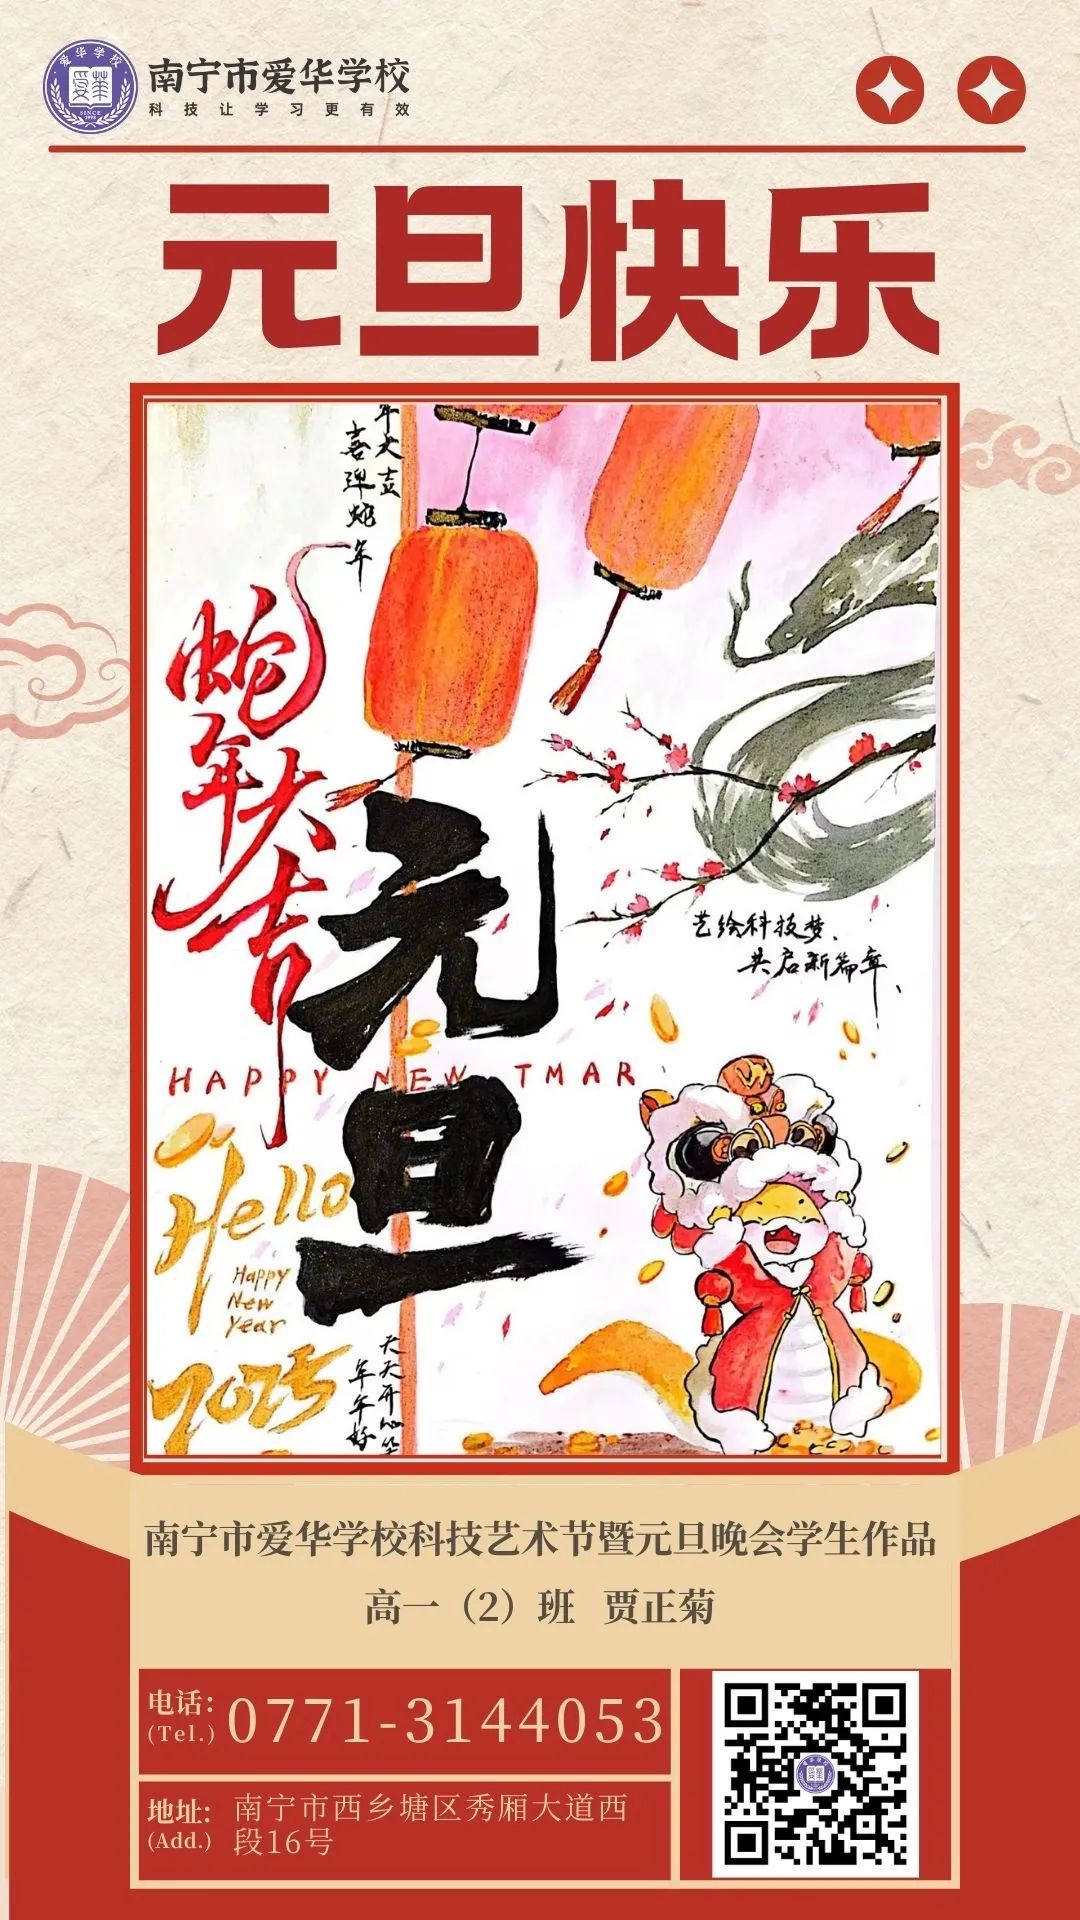 爱华学校
爱华
SINCE
1998
南宁市爱华学校
科技让学习更有效
元旦快乐
年大吉
喜迎蛇年
蛇年大吉
元旦
艺绘科技梦、
共启新篇章、
HAPPY NEW TMAR
Hello
Happy
New
Year
2025
天天开心笑
年年好
南宁市爱华学校科技艺术节暨元旦晚会学生作品
高一（2）班 贾正菊
电话：
(Tel.)
0771-3144053
地址：
(Add.)
南宁市西乡塘区秀厢大道西
段16号